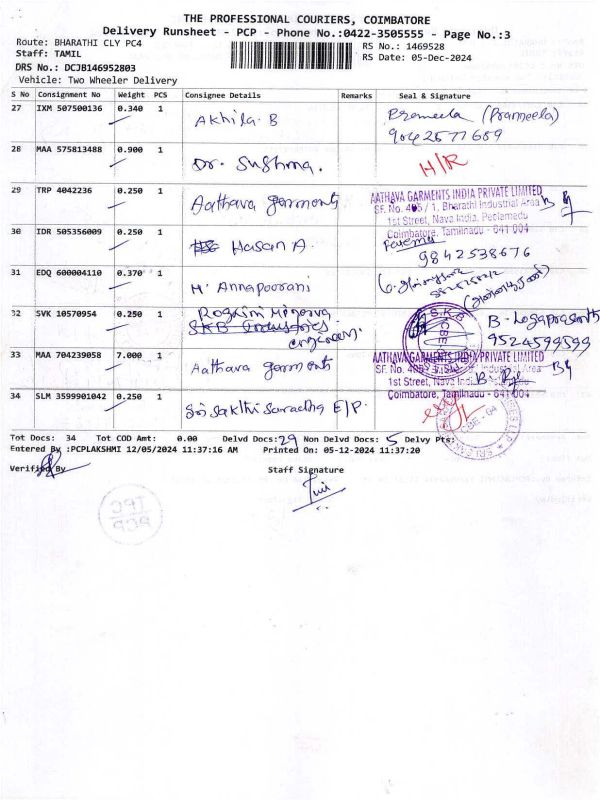 THE PROFESSIONAL COURIERS, COIMBATORE
Delivery Runsheet - PCP - Phone No.:0422-3505555 - Page No.:3
Route: BHARATHI CLY PC4
RS No.: 1469528
Staff: TAMIL
RS Date: 05-Dec-2024
DRS No.: DCJB146952803
Vehicle: Two Wheeler Delivery
S No Consignment No Weight PCS Consignee Details Remarks Seal & Signature
27 IXM 507500136 0.340 1 Akhila. B Prameela (Prameela)
9042577659
28 MAA 575813488 0.900 1 Dr. Sushma. H/R
29 TRP 4042236 0.250 1 Aathava garments
AATHAVA GARMENTS INDIA PRIVATE LIMITED
SF. No. 405 / 1, Bharathi Industrial Area
1st Street, Nava India, Peelamedu
Coimbatore, Tamilnadu - 641 004
30 IDR 505356009 0.250 1 Hasan A.
9842538676
31 EDQ 600004110 0.370 1 H. Annapoorani
32 SVK 10570954 0.250 1 Rogini Minerva
SKB Industries
engineers.
B - Logaprasanth
9524599599
33 MAA 704239058 7.000 1 Aathava garments
AATHAVA GARMENTS INDIA PRIVATE LIMITED
SF. No. 405 / 1, Bharathi Industrial Area
1st Street, Nava India,
Coimbatore, Tamilnadu - 641 004
34 SLM 3599901042 0.250 1 Sri Sakthi Saradha E/P.
Tot Docs: 34 Tot COD Amt: 0.00 Delvd Docs:29 Non Delvd Docs: 5 Delvy Pts:
Entered By :PCPLAKSHMI 12/05/2024 11:37:16 AM Printed On: 05-12-2024 11:37:20
Verified By Staff Signature
TPC
PCP